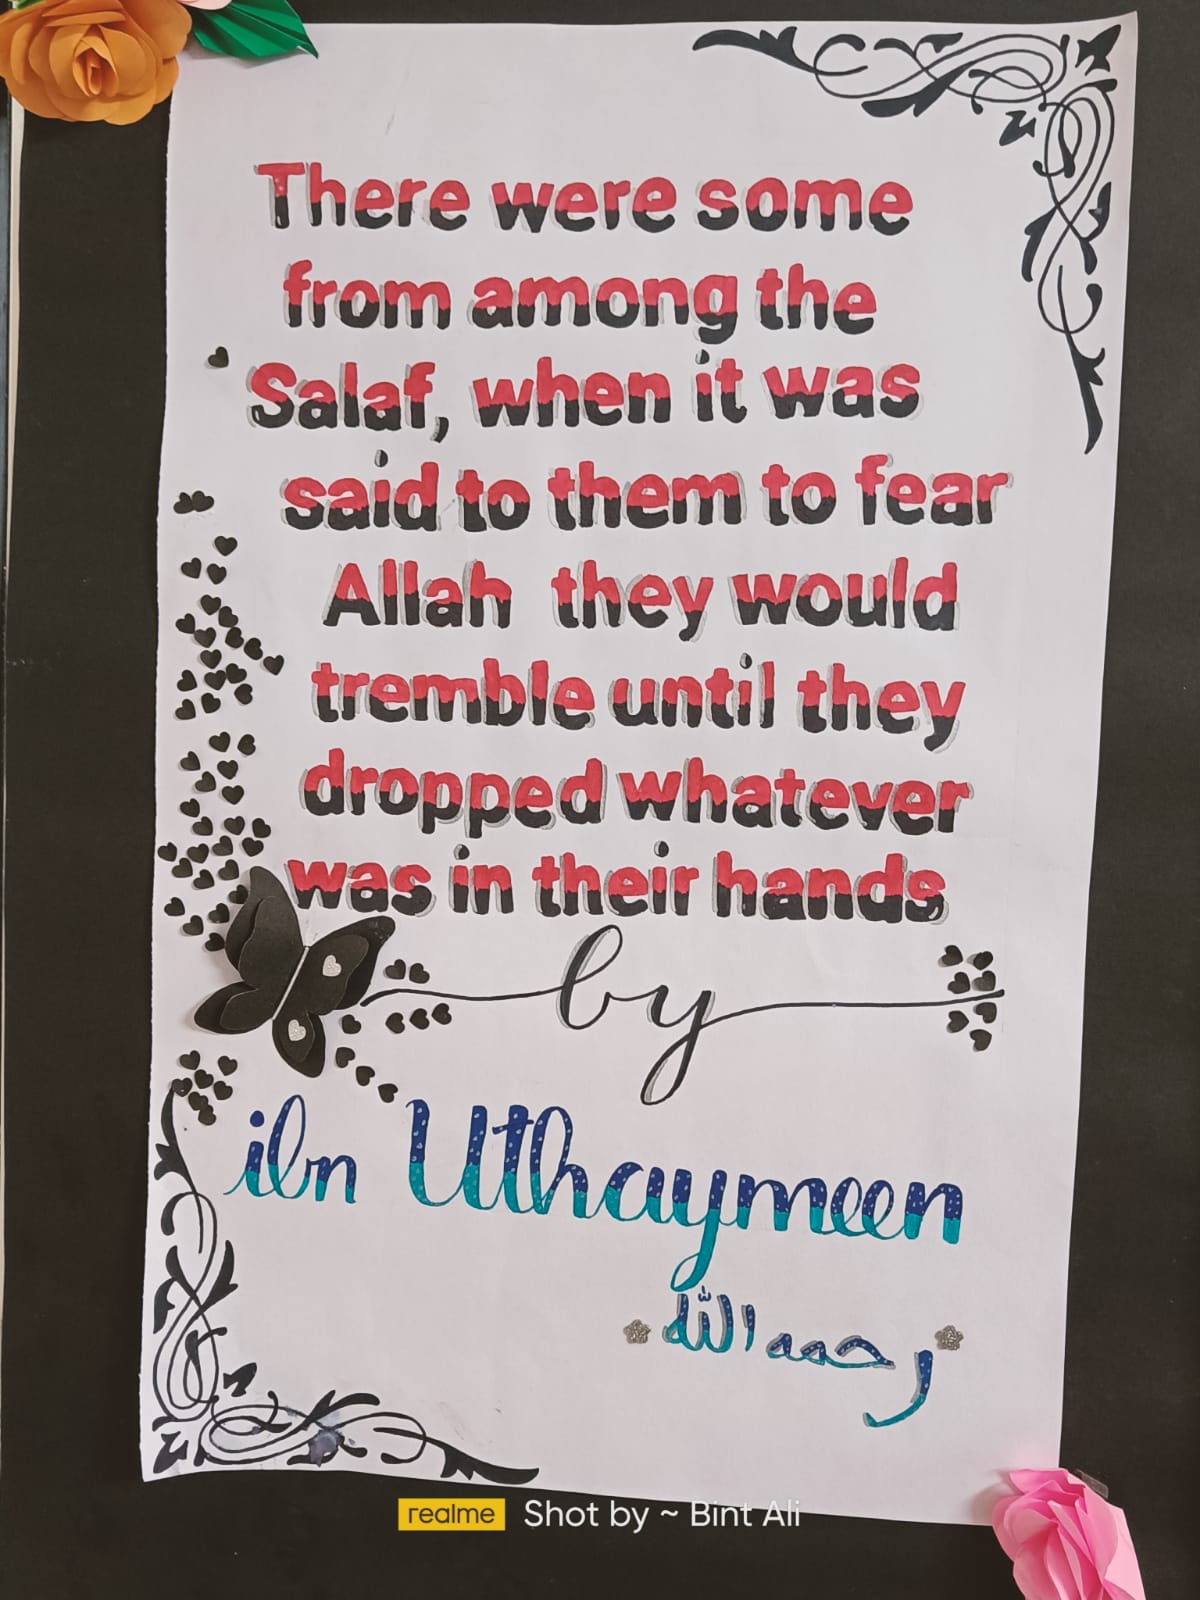 There were some
from among the
Salaf, when it was
said to them to fear
Allah they would
tremble until they
dropped whatever
was in their hands
by
ibn Uthaymeen
رحمه الله
realme Shot by ~ Bint Ali